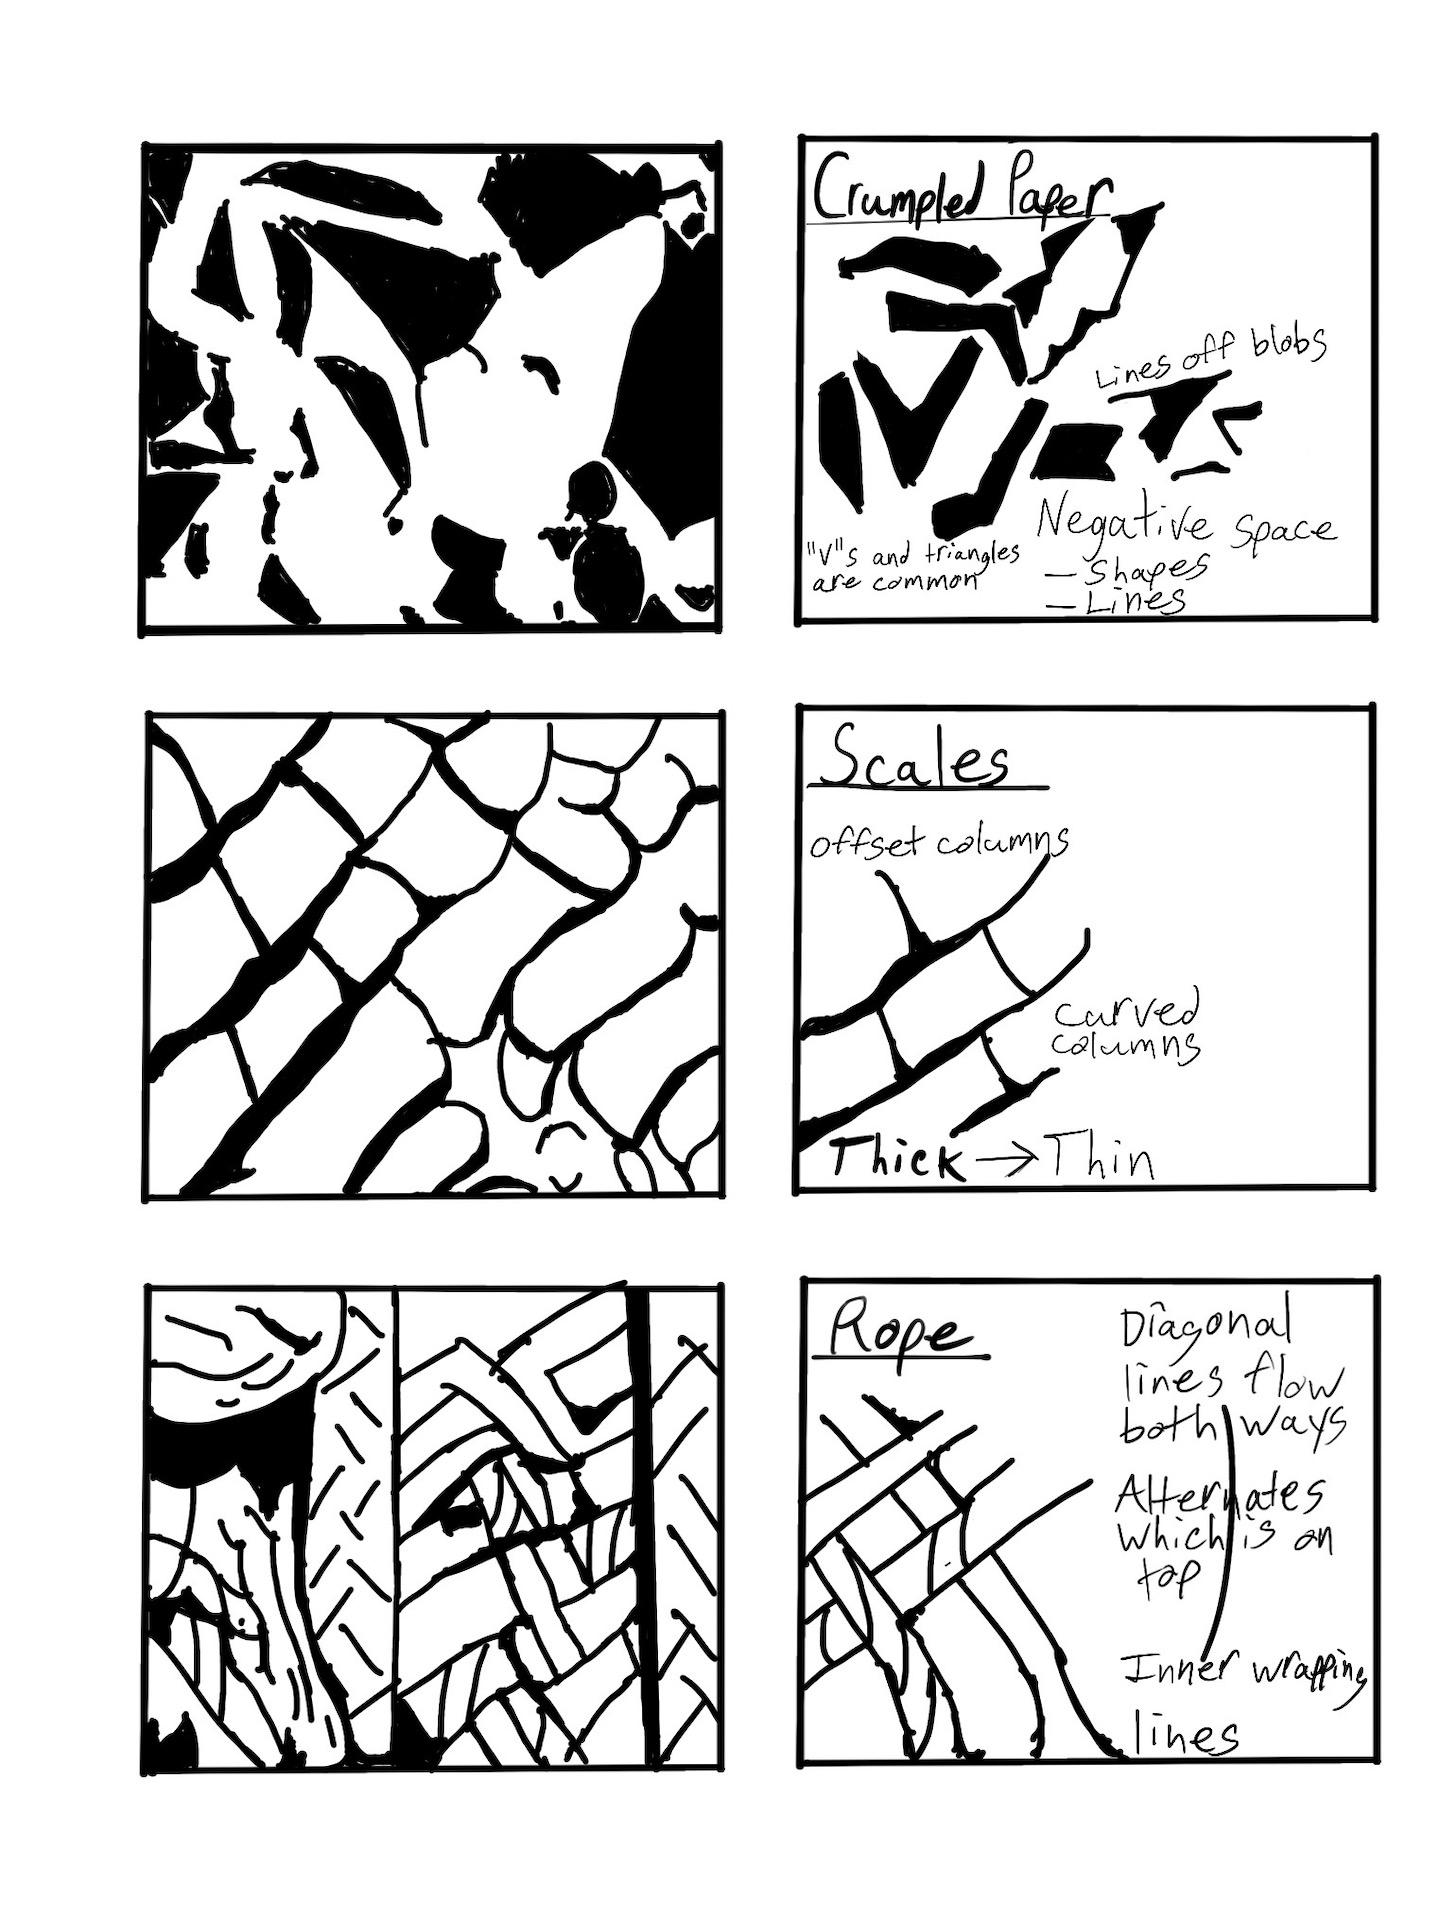 Crumpled Paper
Lines off blobs
"V"s and triangles
are common
Negative Space
- Shapes
- Lines
Scales
offset columns
curved
columns
Thick → Thin
Rope
Diagonal
lines flow
both ways
Alternates
which is on
top
Inner wrapping
lines